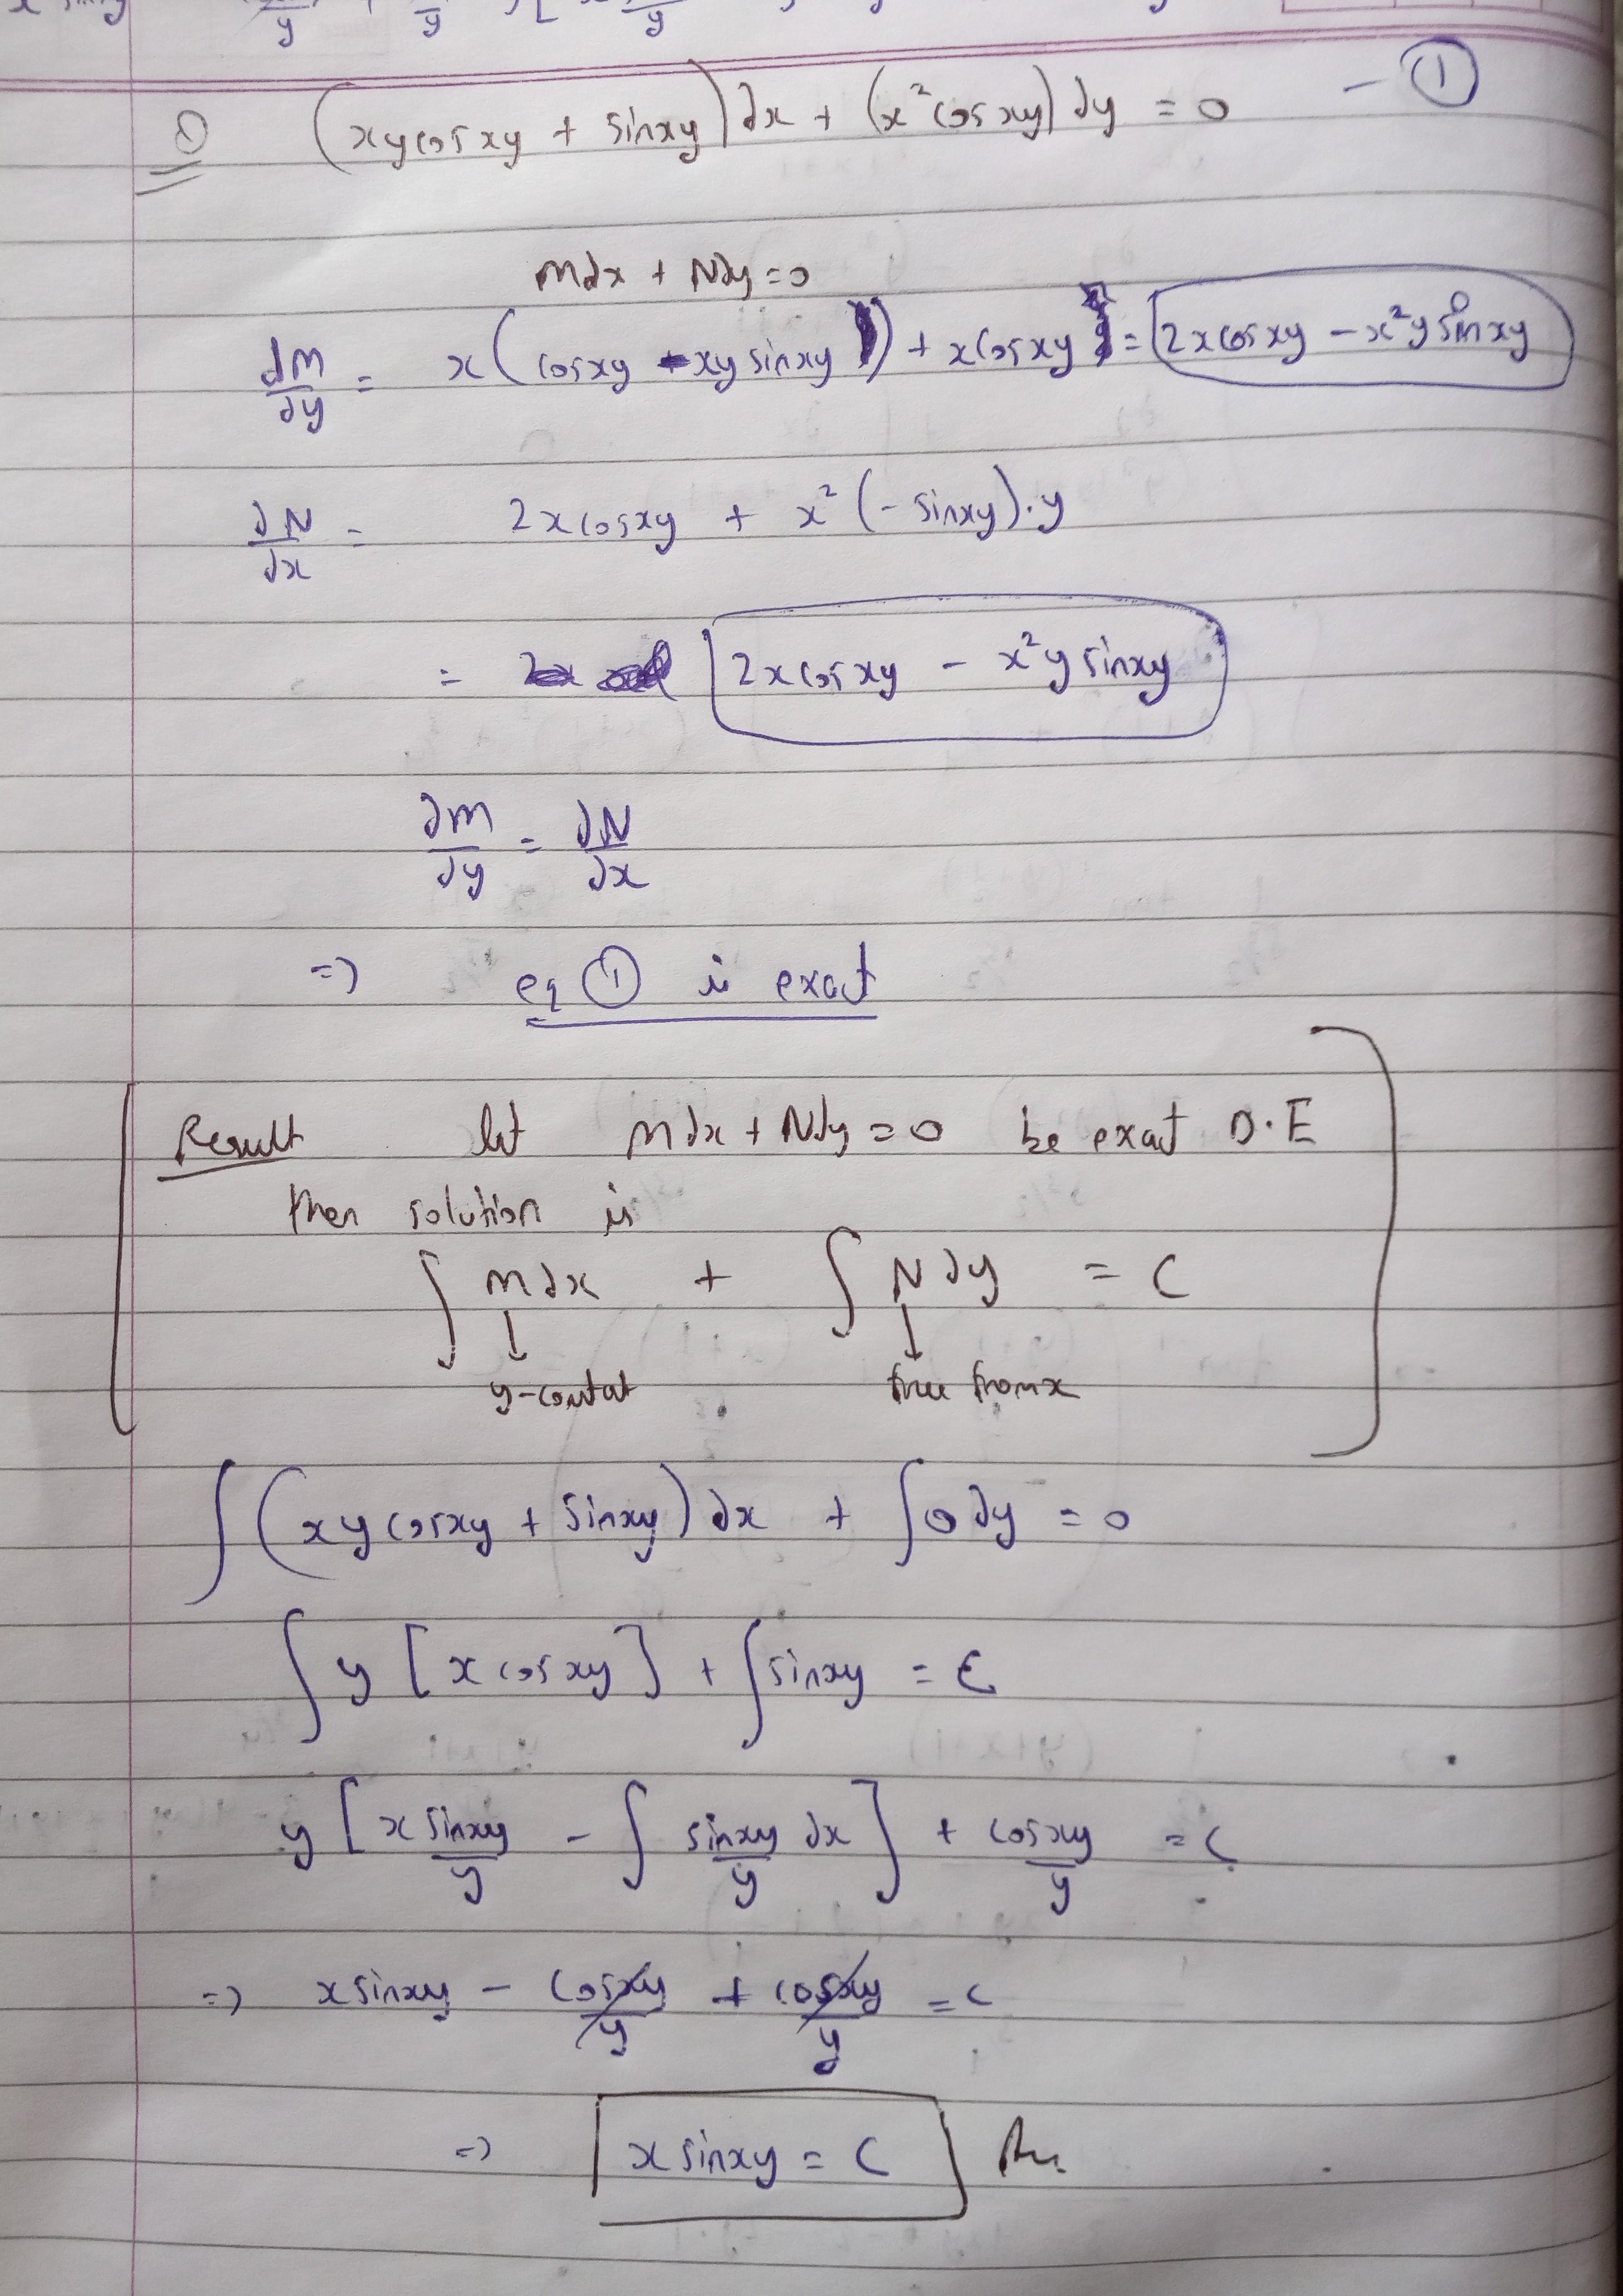 ① (xycosxy + sinxy)dx + (x²cosxy)dy = 0 - ①
Mdx + Ndy = 0
∂M/∂y = x(cosxy - xysinxy) + xcosxy = 2xcosxy - x²ysinxy
∂N/∂x = 2xcosxy + x²(-sinxy).y
= 2xcosxy - x²ysinxy
∂M/∂y = ∂N/∂x
=> eq ① is exact
Result let Mdx + Ndy = 0 be exact D.E
then solution is
∫ Mdx + ∫ Ndy = C
y-contat free from x
∫ (xycosxy + sinxy)dx + ∫0dy = 0
∫ y [x cosxy] + ∫sinxy = C
y [x sinxy/y - ∫ sinxy/y dx] + cosxy/y = C
=> xsinxy - cosxy/y + cosxy/y = C
=> xsinxy = C